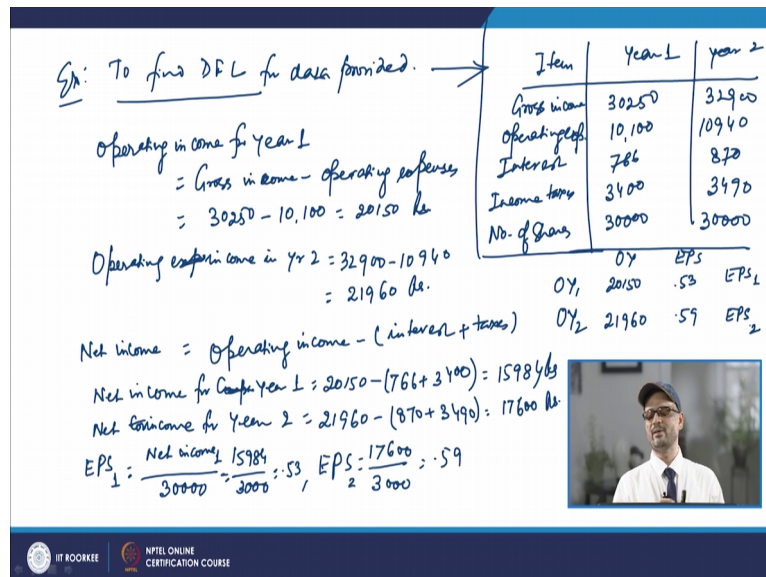 Ex: To find DFL for data provided. →
Item Year 1 year 2
Gross income 30250 32900
Operating exp. 10,100 10940
Interest 766 870
Income taxes 3400 3490
No. of Shares 30000 30000
OY EPS
OY1 20150 .53 EPS1
OY2 21960 .59 EPS2
Operating income for year 1
= Gross income - operating expenses
= 30250 - 10,100 = 20150 Rs
Operating income in yr 2 = 32900 - 10940
= 21960 Rs.
Net income = Operating income - (interest + taxes)
Net income for year 1 = 20150 - (766 + 3400) = 15984 Rs
Net income for year 2 = 21960 - (870 + 3490) = 17600 Rs.
EPS1 = Net income1 / 30000 = 15984 / 3000 = .53, EPS2 = 17600 / 3000 = .59
IIT ROORKEE
NPTEL ONLINE
CERTIFICATION COURSE